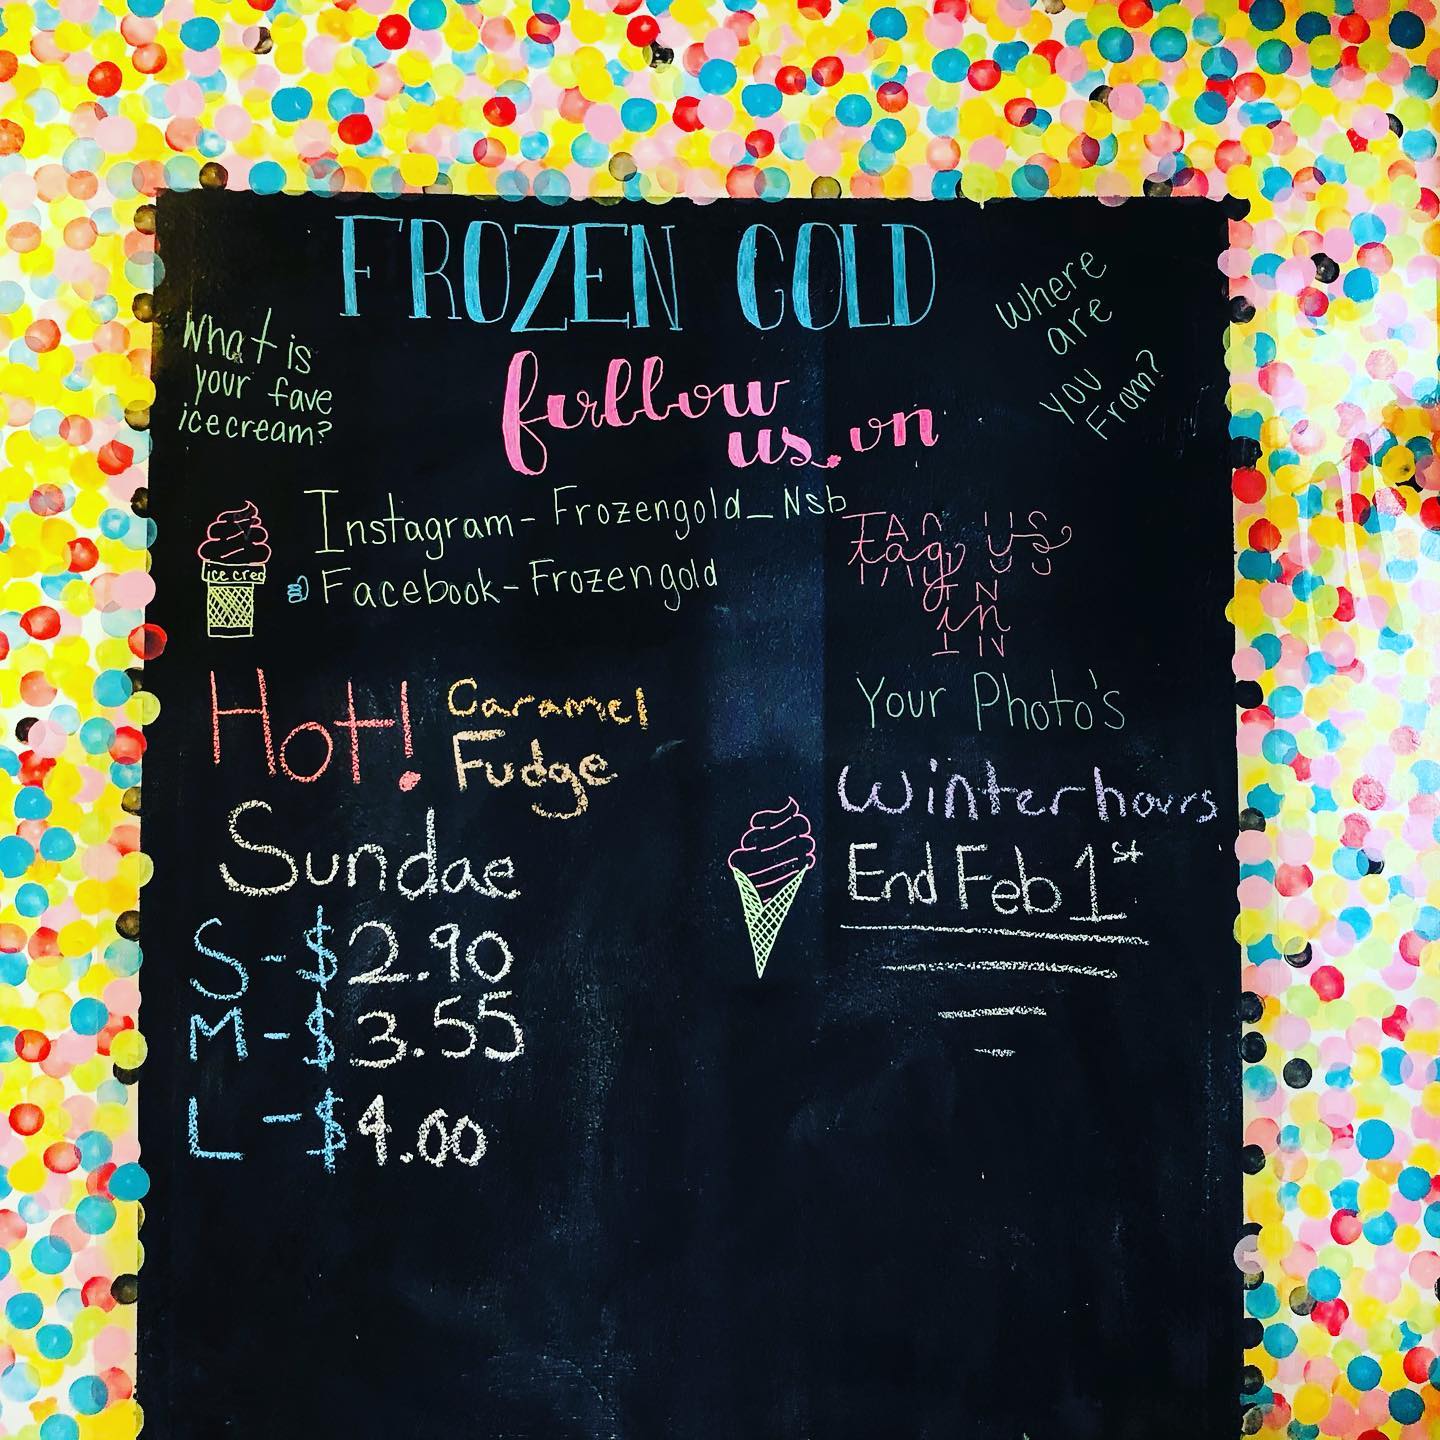 FROZEN GOLD
What is
your fave
ice cream?
Where
are
you
From?
follow
us on
Instagram - Frozengold_Nsb
Facebook - Frozengold
ice crea
TAG US
tag us
IN
in
IN
Your Photo's
Hot! Caramel
Fudge
Sundae
S - $2.90
M - $3.55
L - $4.00
Winter hours
End Feb 1st